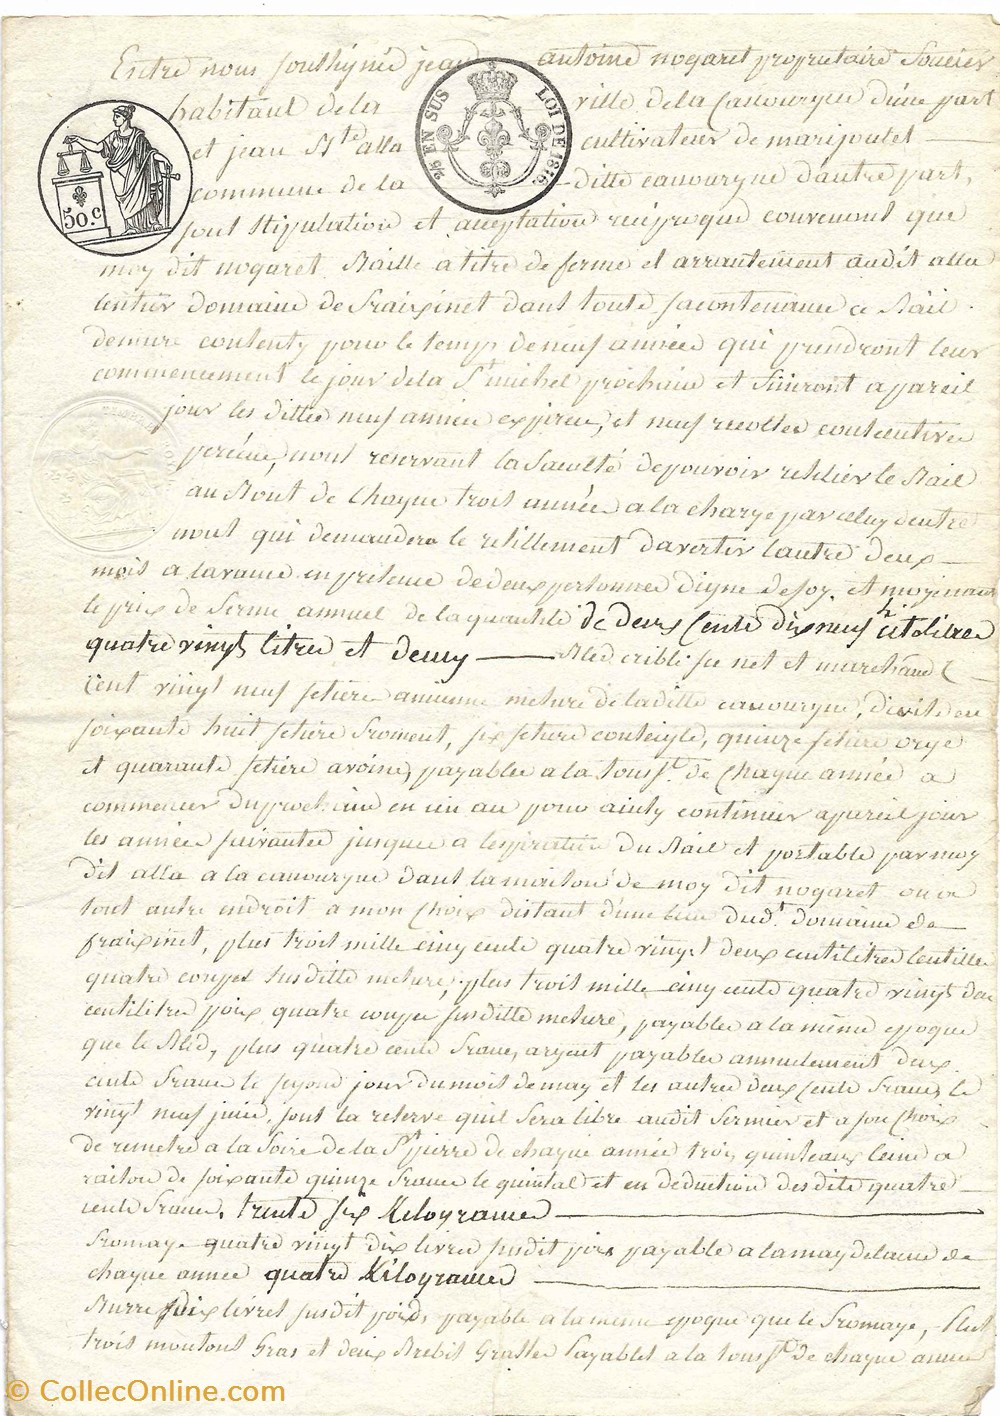 Entre nous soussignés jean antoine nogaret propriétaire foncier
habitant de la ville de la Canourgue d'une part
et jean Bte alla cultivateur de marijoulet
commune de la ditte canourgue dautre part,
sous stipulation et acceptation reciproque convenons que
moy dit nogaret Baille a titre de ferme et arrantement audit alla
lentier domaine de fraissinet dans toute sa contenance ce Bail
demure consenty pour le temps de neuf année qui prendront leur
commencement le jour de la St michel prochain et finiront a pareil
jour les dittes neuf année expirée, et neuf recoltes consecutives
percüe, nous reservant la faculté de pouvoir resilier le Bail
au Bout de chaque trois années a la charge par celuy dentre
nous qui demandera le resillement davertir lautre deux
mois a lavance en présence de deux personnes digne de foy, et moyenant
le prix de ferme annuel de la quantité de deux cents dix neuf hectolitres
quatre vingts litres et demy Bled criblé sec net et marchand
cent vingt neuf setiers ancienne mesure de la ditte canourgue, divisée en
soixante huit setiers froment, six setiers conseigle, quinze setiers orge
et quarante setiers avoine, payables a la Toussts. de chaque année a
commencer du prochain en un an pour ainsy continuer a pareil jour
les année suivantes jusques a lexpiration du Bail et portable par moy
dit alla a la canourgue dans la maison de moy dit nogaret ou a
tout autre endroit a mon choix distant d'une lieu dudt. domaine de
fraissinet, plus trois mille cinq cents quatre vingts deux centilitres lentilles
quatre coupes susditte mesure, plus trois mille cinq cents quatre vingts deux
centilitres pois quatre coupes susditte mesure, payables a la même epoque
que le Bled, plus quatre cents francs argent payables annuelement deux
cents francs le segond jour du mois de may et les autres deux cents francs le
vingt neuf juin, sous la reserve quil sera libre audit fermier et a son choix
de remetre a la foire de la St pierre de chaque année trois quintaux leine a
raison de soixante quinze francs le quintal et en deduction desdits quatre
cents francs, trente six Kilogrames
fromage quatre vingt dix livres susdit poids payable a la may de laine de
chaque année quatre Kilogrames
Burre dix livres susdit poids, payable a la meme epoque que le fromage, plus
trois moutons Gras et deux Brebis Grasses payables a la Toussts de chaque année
50.C
2/5 EN SUS LOI DE 1816
© CollecOnline.com